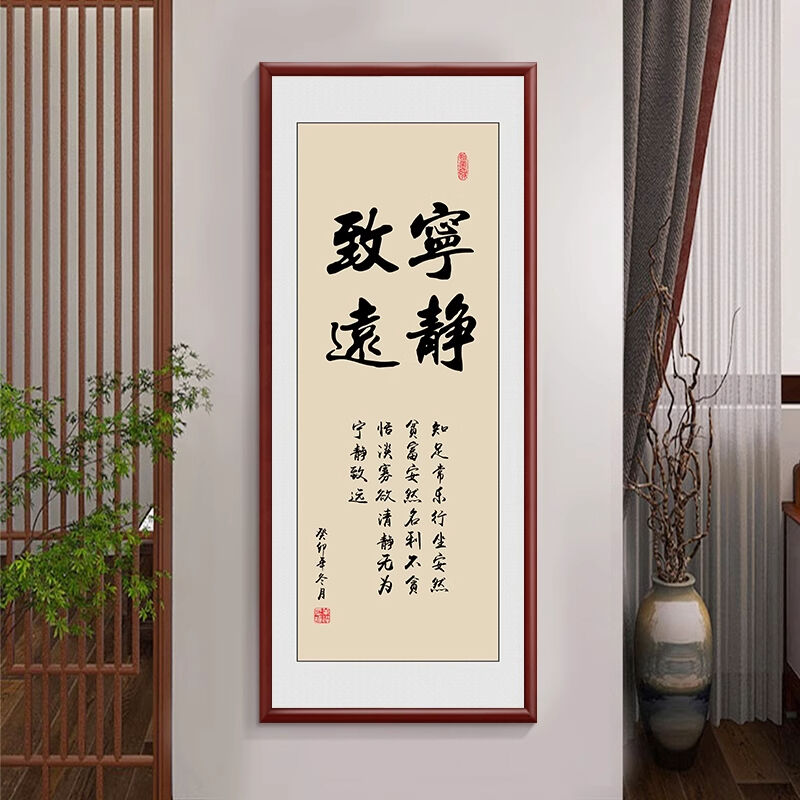 寧靜
致遠
知足常乐行坐安然
贫富安然名利不贪
恬淡寡欲清静无为
宁静致远
癸卯年冬月